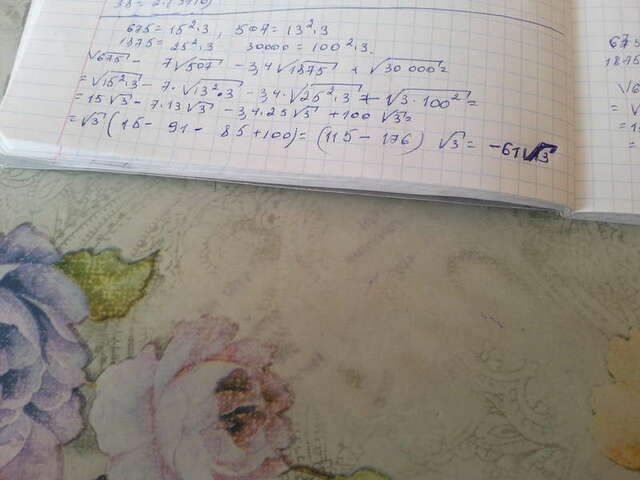 675 = 15²·3, 507 = 13²·3
1875 = 25²·3 30000 = 100²·3.
√675 - 7√507 - 3,4√1875 + √30000 =
= √15²·3 - 7·√13²·3 - 3,4·√25²·3 + √3·100² =
= 15√3 - 7·13√3 - 3,4·25√3 + 100√3 =
= √3 (15 - 91 - 85 + 100) = (115 - 176) √3 = -61√3
675
1875